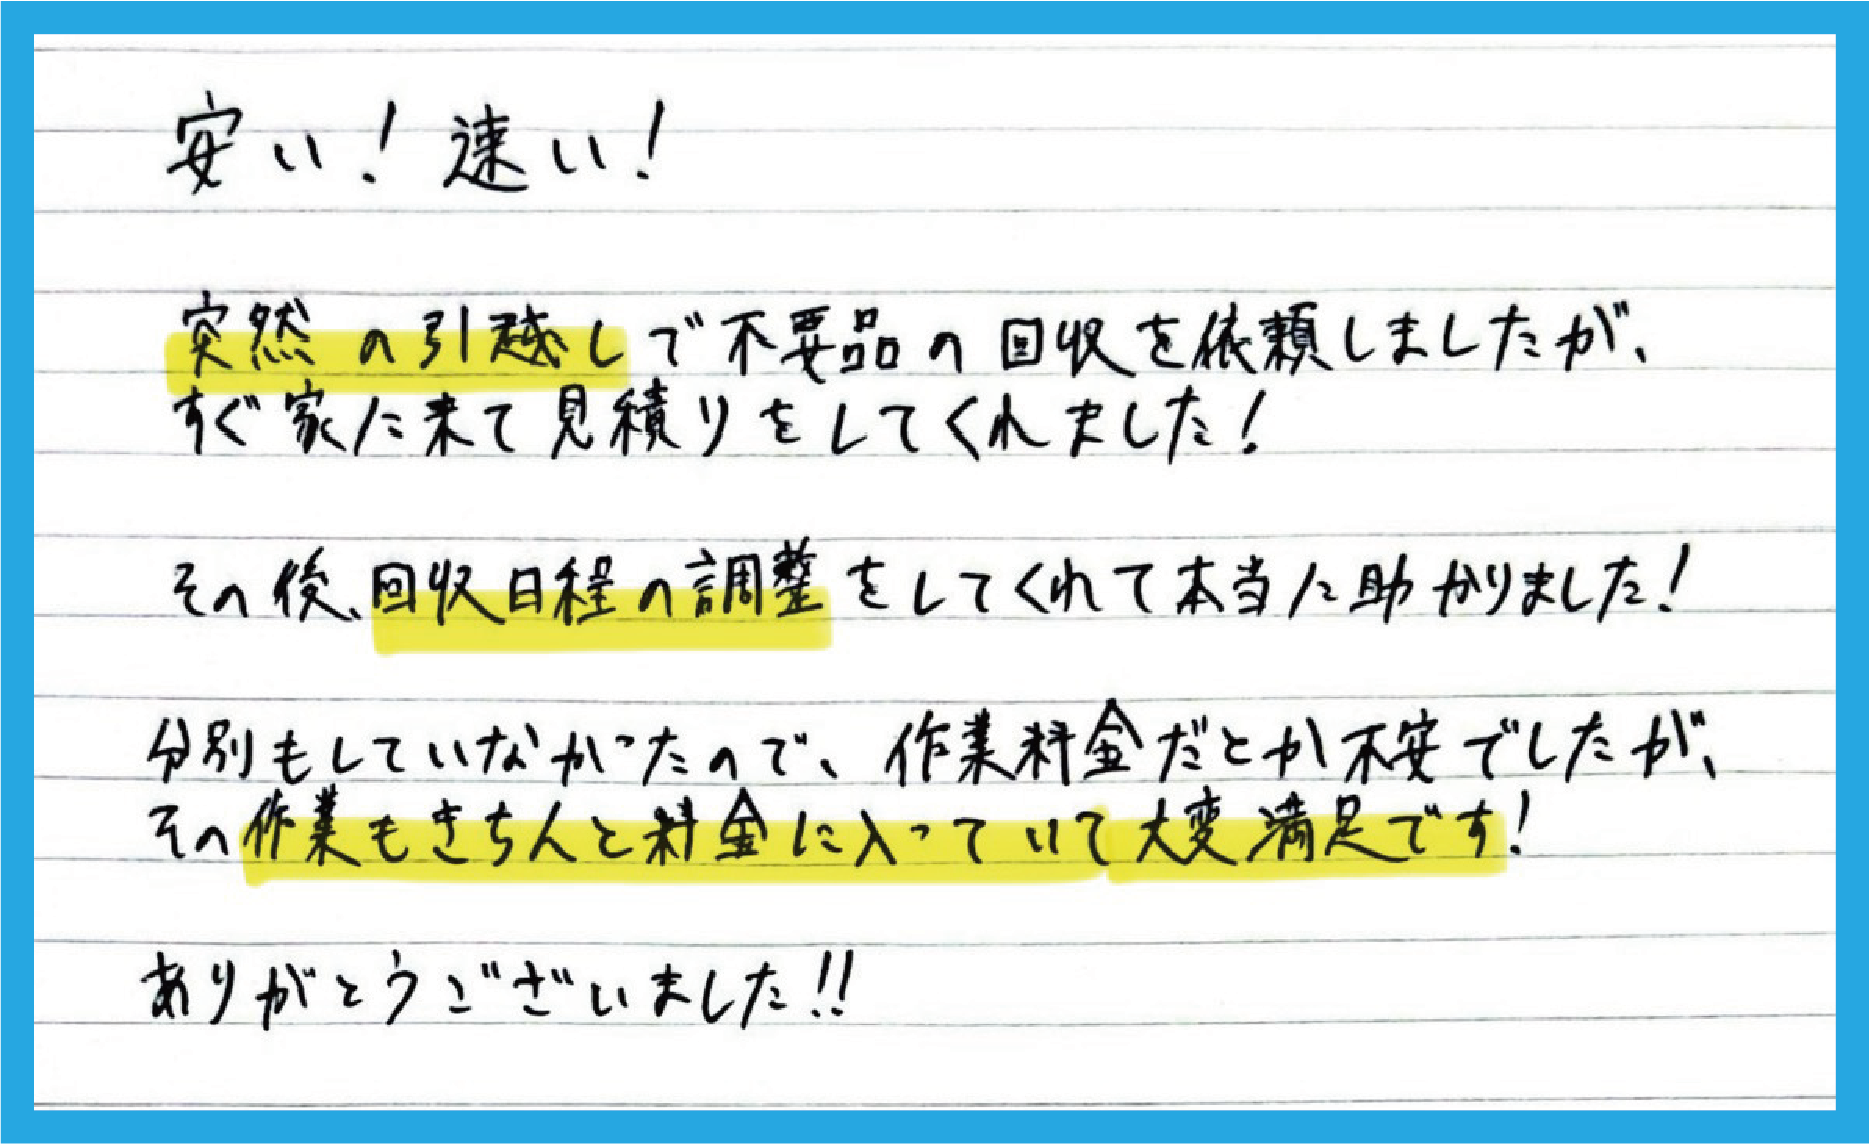 安い！速い！
突然の引越しで不要品の回収を依頼しましたが、
すぐ家に来て見積りをしてくれました！
その後、回収日程の調整をしてくれて本当に助かりました！
分別もしていなかったので、作業料金だとか不安でしたが、
その作業もきちんと料金に入っていて大変満足です！
ありがとうございました!!